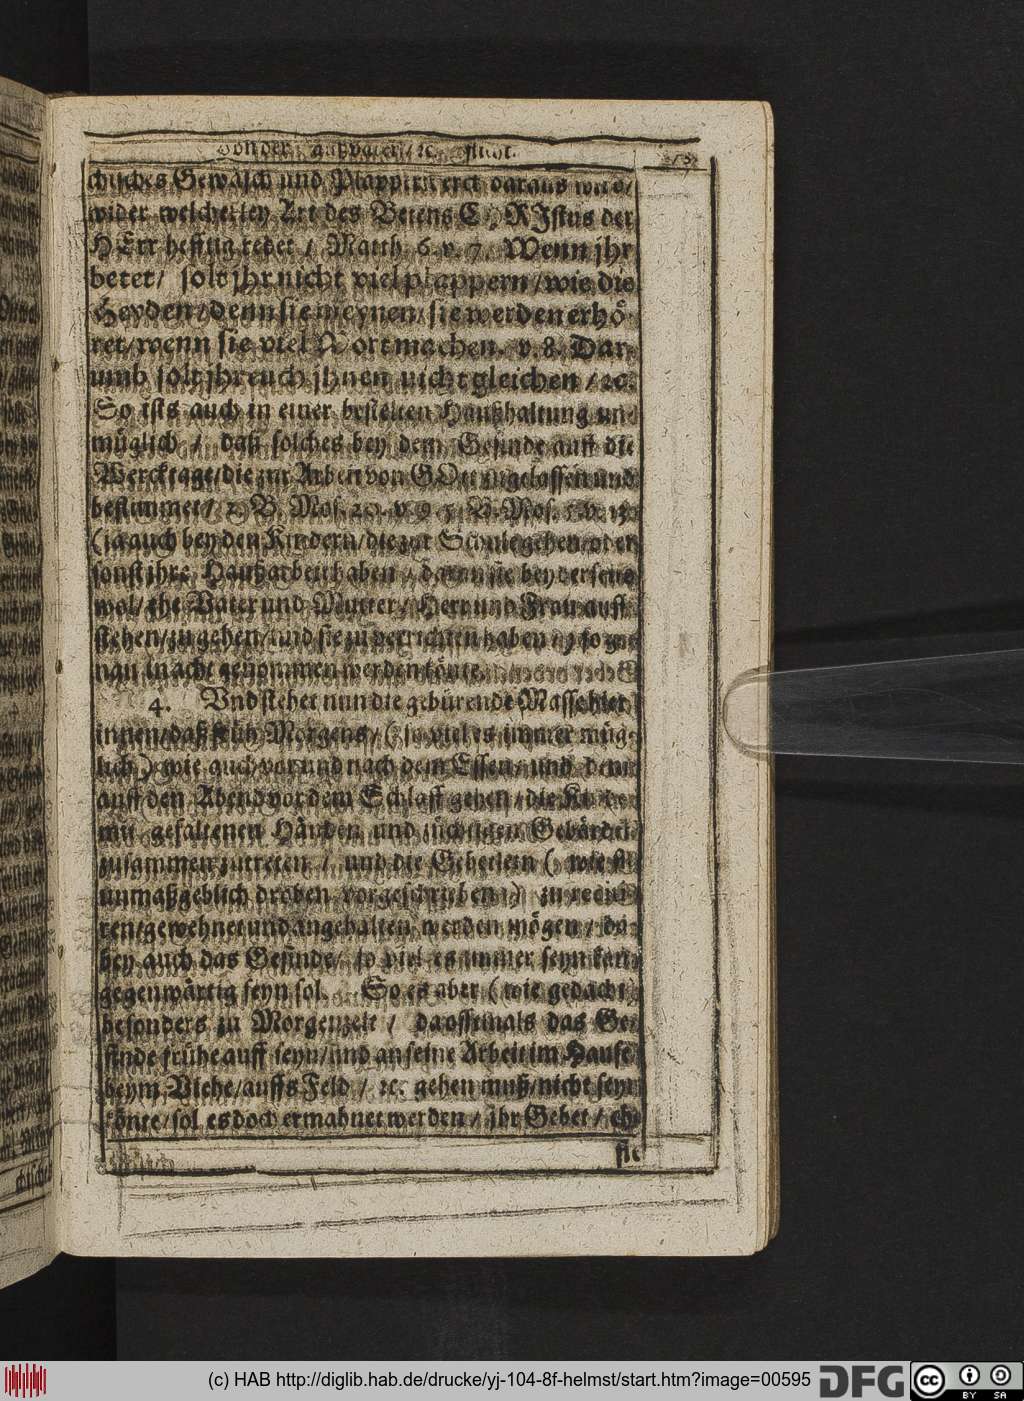 Von der Haußväter / ꝛc. Pflicht.
chisches Gewäsch und Plapperwerck daraus wird /
wider welcherley Art des Betens CHRIstus der
HErr hefftig redet / Matth. 6. v. 7. Wenn jhr
betet / solt jhr nicht viel plappern / wie die
Heyden / denn sie meynen / sie werden erhö-
ret / wenn sie viel Wort machen. v. 8. Dar-
umb solt jhr euch jhnen nicht gleichen / ꝛc.
So ists auch in einer bestelten Haußhaltung un-
müglich / daß solches bey dem Gesinde auff die
Wercktage / die zur Arbeit von GOtt zugelassen und
bestimmet / 2. B. Mos. 20. v. 9. 5. B. Mos. 5. v. 13.
(ja auch bey den Kindern / die zur Schule gehen / oder
sonst jhre Haußarbeit haben / darzu sie beyderseits
wol / ehe Vater und Mutter / Herr und Frau auff-
stehen / zu gehen / und sie zu verrichten haben /) so ge-
nau in acht genommen werden könte.
4. Und stehet nun die gebürende Masse hier-
innen / daß früh Morgens / (so viel es immer müg-
lich) wie auch vor und nach dem Essen / und denn
auff den Abend vor dem Schlaff gehen / die Kinder
mit gefaltenen Händen und züchtigen Gebärden
zusammen zutreten / und die Gebetlein (wie sie
unmaßgeblich droben vorgeschrieben /) zu reciti-
ren / gewehnet und angehalten werden mögen / da-
bey auch das Gesinde / so viel es immer seyn kan /
gegenwärtig seyn sol. So es aber (wie gedacht)
besonders zu Morgenzeit / da offtmals das Ge-
sinde frühe auff seyn / und an seine Arbeit im Hause /
beym Viehe / auffs Feld / ꝛc. gehen muß / nicht seyn
könte / sol es doch ermahnet werden / jhr Gebet / ehe
sie
(c) HAB http://diglib.hab.de/drucke/yj-104-8f-helmst/start.htm?image=00595 DFG cc BY SA